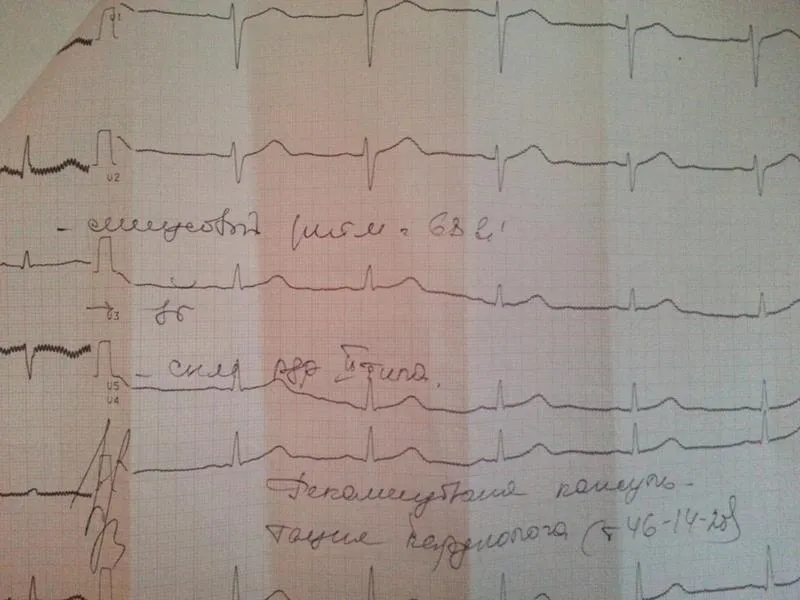 V1
V2
- синусовый ритм - 68 в'
V3
V5
- СРРЖ II типа.
V4
Рекомендована консуль-
тация кардиолога (т 46-14-28)